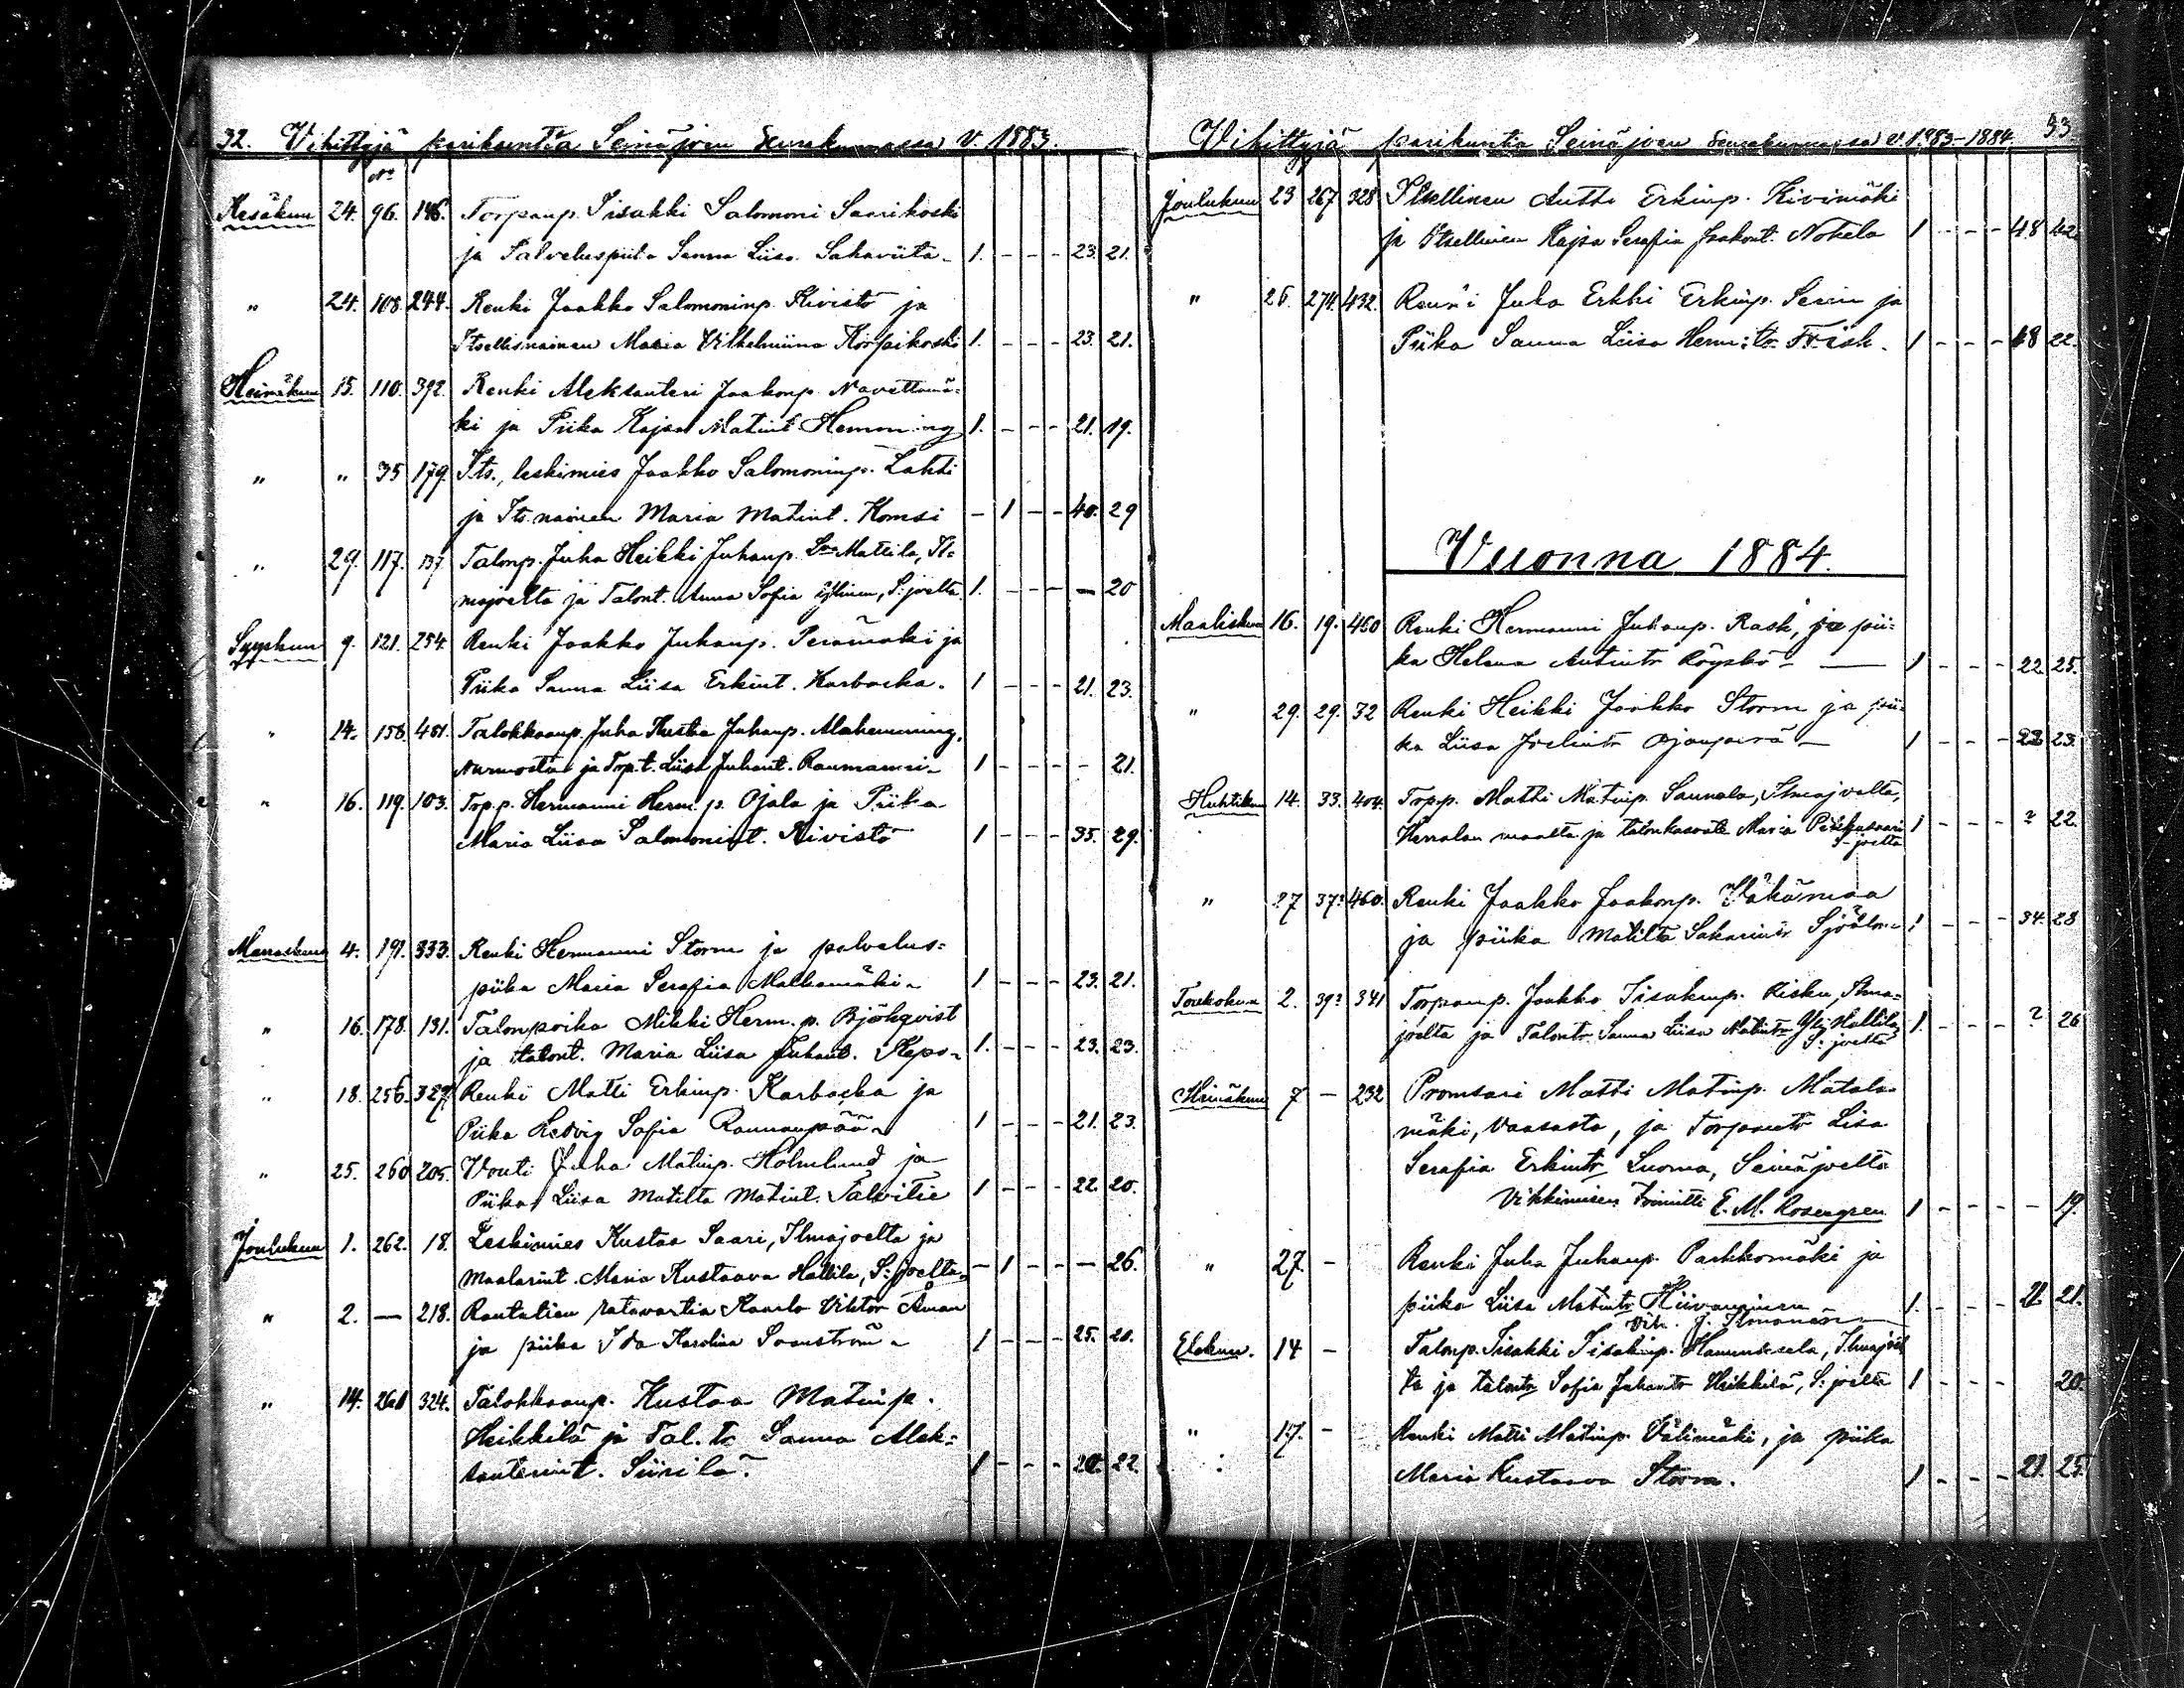 32. Vihittyjä parikuntia Seinäjoen Seurakunnassa v. 1883.
No
Kesäkuu 24. 96. 146. Torpanp. Iisakki Salomoni Saarikoski
ja Palveluspiika Sanna Liisa Sahaviita 1. - - - 23. 21.
" 24. 108. 244. Renki Jaakko Salomoninp. Kivistö ja
Itsellisnainen Maria Vilhelmiina Korpikoski 1. - - - 23. 21.
Heinäkuu 15. 110. 392. Renki Aleksanteri Jaakonp. Navettamä-
ki ja Piika Kajsa Matint. Hemming 1. - - - 21. 19.
" " 35 179. Its., leskimies Jaakko Salomoninp. Lahti
ja Its. nainen Maria Matint. Komsi - 1 - - 40. 29
" 29. 117. 137 Talonp. Juha Heikki Juhanp. Mattila, Il-
majoelta ja Talont. Anna Sofia, S:joelta. 1. - - - - 20
Syyskuu 9. 121. 254. Renki Jaakko Juhanp. Perämäki ja
Piika Sanna Liisa Erkint. Karbacka. 1 - - - 21. 23.
" 14. 158 451. Talokkaanp. Juha Kusta Juhanp. Alahemming,
Nurmosta ja Trp.t. Liisa Juhant. Raumanni 1 - - - - 21.
" 16. 119. 103. Trp.p. Hermanni Herm. p. Ojala ja Piika
Maria Liisa Salomonint. Kivistö 1 - - - 35. 29.
Marraskuu 4. 191. 333. Renki Hermanni Storm ja palvelus-
piika Maria Serafia Malkamäki 1 - - - 23. 21.
" 16. 178. 131. Talonpoika Mikki Herm. p. Björkqvist
ja talont. Maria Liisa Juhant. Kepo 1. - - - 23. 23.
" 18. 256. 327. Renki Matti Erkinp. Karbacka ja
Piika Hedvig Sofia Rannanpää 1 - - - 21. 23.
" 25. 260 205. Vouti Juha Matinp. Holmlund ja
Piika Liisa Matilta Matint. Talvitie 1 - - - 22. 20.
Joulukuu 1. 262. 18. Leskimies Kustaa Saari, Ilmajoelta ja
Maalarint. Maria Kustaava Hallila, S:joelta - 1 - - - 26.
" 2. — 218. Rautatien ratavartia Kaarlo Viktor Åman
ja piika Ida Karolina Svanström 1 - - - 25. 21.
" 14. 261 324. Talokkaanp. Kustaa Matinp.
Heikkilä ja Tal. tr. Sanna Alek-
santerint. Siirilä. 1 - - - 20. 22.
Vihittyjä parikuntia Seinäjoen Seurakunnassa v. 1883-1884. 33
Joulukuu 23 267 328 Itsellinen Antti Erkinp. Kivimäki
ja Itsellinen Kajsa Serafia Jaakont. Nokela 1 - - - 48 42
" 26. 274. 432. Renki Juha Erkki Erkinp. Servin ja
Piika Sanna Liisa Herm:tr. Frisk. 1 - - - 18 22.
Vuonna 1884.
Maaliskuu 16. 19. 460 Renki Hermanni Juhanp. Rask, ja pii-
ka Helena Antintr Röyskö — 1 - - - 22. 25.
" 29. 29. 32 Renki Heikki Jaakko Storm ja pii-
ka Liisa Joelintr Ojanperä 1 - - - 23 23.
Huhtikuu 14. 33. 404. Trp.p. Matti Matinp. Saunala, Ilmajoelta,
Herralan maalta ja talonhaarate Maria S-joelta 1 - - - ? 22.
" 27 37? 460. Renki Jaakko Jaakonp. Ikäkämaa
ja piika Matilta Sakarintr Sjöolm 1 - - - 34. 28
Toukokuu 2. 39? 341 Torpanp. Jaakko Iisakinp. Risku, Ilma-
joelta ja Talontr Sanna Liisa Matintr Yli Hallila, S:joelta 1. - - - ? 26
Heinäkuu 7 — 232 Promsari Matti Matinp. Matala-
mäki, Vaasasta, ja Torparitr Lisa
Serafia Erkintr Luoma, Seinäjoelta
Vihkimisen toimitti E. M. Rosengren 1 - - - - 19.
" 27. - Renki Juha Juhanp. Parkkomäki ja
piika Liisa Matintr Hiivanainen 1. - - - 21. 21.
Vih. J. Ilmonen
Elokuu. 14 - Talonp. Iisakki Iisakinp. Hannuksela, Ilmajoel
ta ja talontr Sofia Juhantr Heikkilä, S:joelta 1 - - - 20.
" 17. - Renki Matti Matinp. Välimäki, ja piika
Maria Kustaava Storm. 1 - - - 21. 25.